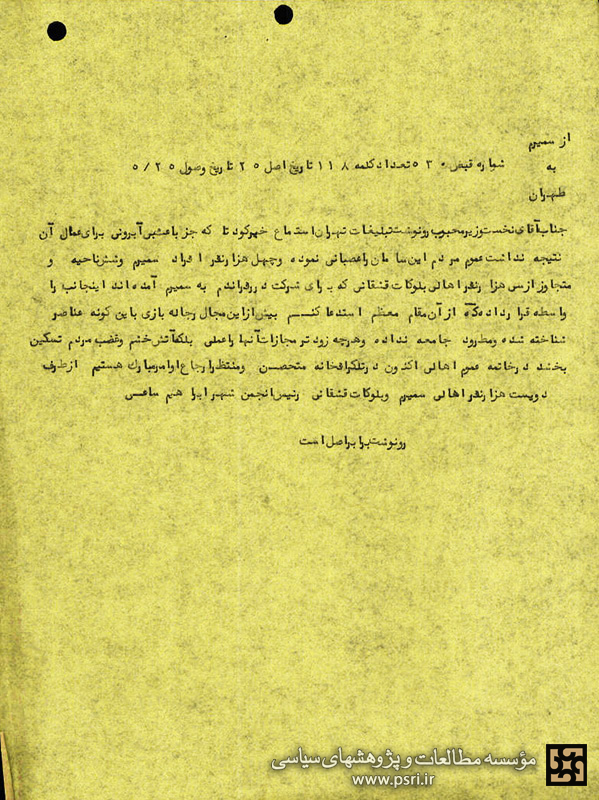 از سمیرم
به
طهران
شماره قبض ۵۳۰ تعداد کلمه ۱۱۸ تاریخ اصل ۲۵ تاریخ وصول ۵/۲۵
جناب آقای نخست وزیر محبوب رونوشت تبلیغات تهران استماع خبر کودتا که جز باعث بی آبروئی برای عمال آن
نتیجه نداشت عموم مردم این سامان را عصبانی نموده و چهل هزار نفر افراد سمیرم و شش ناحیه و
متجاوز از سی هزار نفر اهالی بلوکات قشقائی که برای شرکت در رفراندم به سمیرم آمده اند اینجانب را
واسطه قرار داده که از آن مقام معظم استدعا کنم بیش از این مجال رجاله بازی باین گونه عناصر
شناخته شده و مطرود جامعه نداده و هرچه زودتر مجازات آنها را عملی بلکه آتش خشم و غضب مردم تسکین
بخشد در خاتمه عموم اهالی اکنون در تلگرافخانه متحصن و منتظر ارجاع اوامر مبارک هستیم از طرف
دویست هزار نفر اهالی سمیرم و بلوکات قشقائی رئیس انجمن شهر
رونوشت برابر اصل است
مؤسسه مطالعات و پژوهشهای سیاسی
www.psri.ir